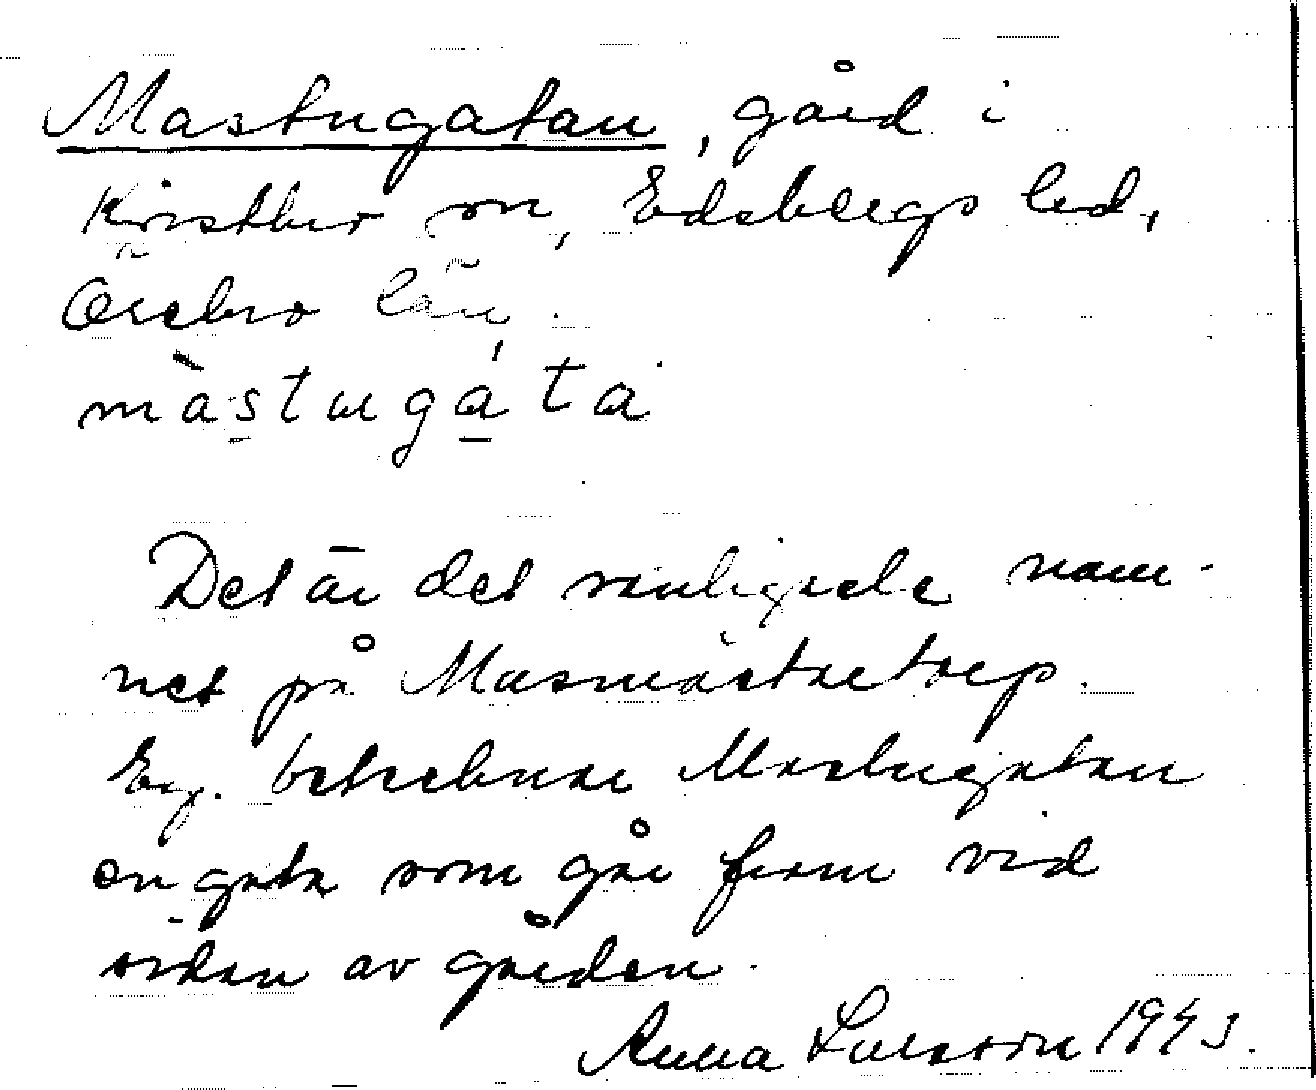 Mastugatan, gård i
Kvistbro sn, Edsbergs hd,
Örebro län.
màstugáta
Det är det vanligaste nam-
net på Masmästaretorp.
Eg. betecknar Mastugatan
en gata som går fram vid
sidan av gården.
Anna Larsson 1943.